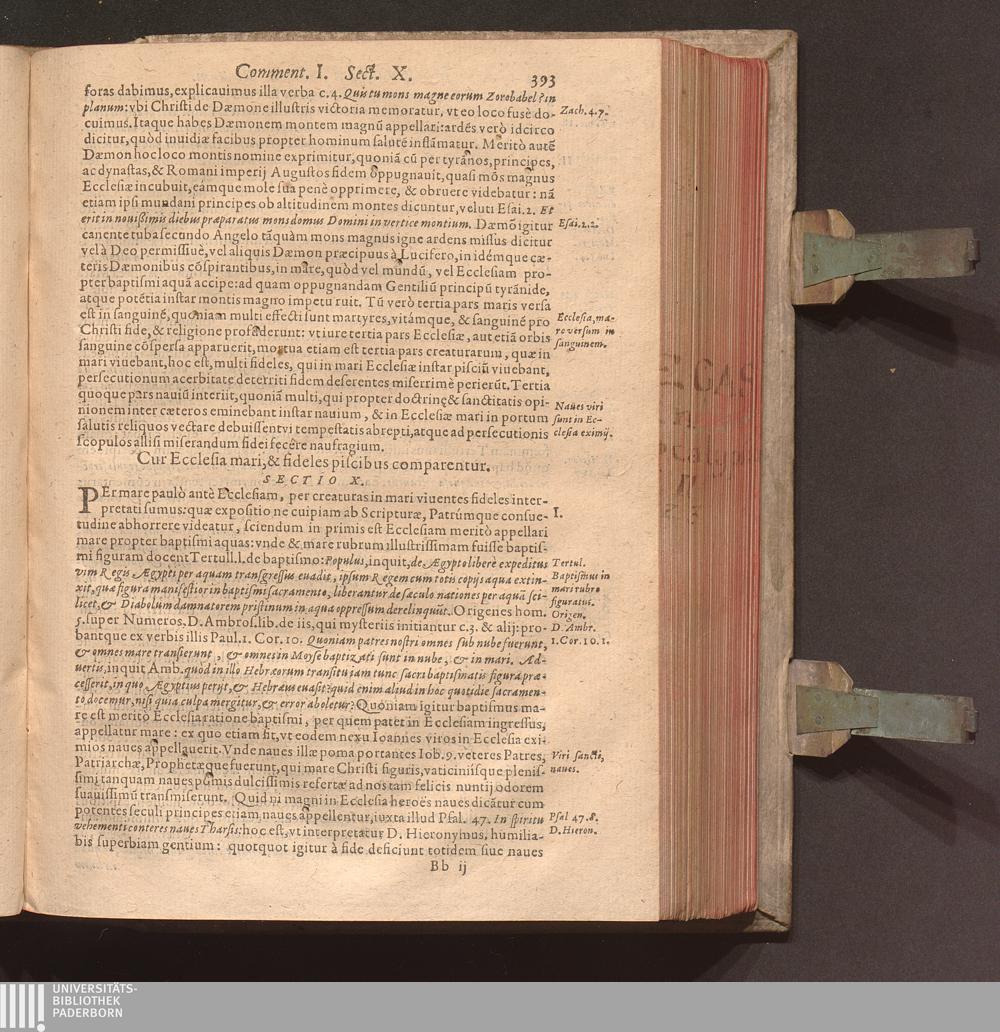 Comment. I. Sect. X. 393
foras dabimus, explicauimus illa verba c. 4. Quis tu mons magne eorum Zorobabel? in
planum: vbi Christi de Dæmone illustris victoria memoratur, vt eo loco fusè do-
cuimus. Itaque habes Dæmonem montem magnū appellari: ardēs verò idcirco
dicitur, quòd inuidiæ facibus propter hominum salutē inflāmatur. Meritò autē
Dæmon hoc loco montis nomine exprimitur, quoniā cū per tyrānos, principes,
ac dynastas, & Romani imperij Augustos fidem oppugnauit, quasi mōs magnus
Ecclesiæ incubuit, eámque mole sua penè opprimere, & obruere videbatur: nā
etiam ipsi mundani principes ob altitudinem montes dicuntur, veluti Esai. 2. Et
erit in nouißimis diebus præparatus mons domus Domini in vertice montium. Dæmō igitur
canente tuba secundo Angelo tāquàm mons magnus igne ardens missus dicitur
vel à Deo permissiuè, vel aliquis Dæmon præcipuus à Lucifero, in idémque cæ-
teris Dæmonibus cōspirantibus, in mare, quòd vel mundū, vel Ecclesiam pro-
pter baptismi aquā accipe: ad quam oppugnandam Gentiliū principū tyrānide,
atque potētia instar montis magno impetu ruit. Tū verò tertia pars maris versa
est in sanguinē, quoniam multi effecti sunt martyres, vitámque, & sanguinē pro
Christi fide, & religione profuderunt: vt iure tertia pars Ecclesiæ, aut etiā orbis
sanguine cōspersa apparuerit, mortua etiam est tertia pars creaturarum, quæ in
mari viuebant, hoc est, multi fideles, qui in mari Ecclesiæ instar pisciū viuebant,
persecutionum acerbitate deterriti fidem deserentes miserrimè perierūt. Tertia
quoque pars nauiū interiit, quoniā multi, qui propter doctrinę & sanctitatis opi-
nionem inter cæteros eminebant instar nauium, & in Ecclesiæ mari in portum
salutis reliquos vectare debuissent vi tempestatis abrepti, atque ad persecutionis
scopulos allisi miserandum fidei fecêre naufragium.
Zach. 4. 7.
Esai. 2. 2.
Ecclesia, ma-
re versum in
sanguinem.
Naues viri
sunt in Ec-
clesia eximij.
Cur Ecclesia mari, & fideles piscibus comparentur.
SECTIO X.
PEr mare paulò antè Ecclesiam, per creaturas in mari viuentes fideles inter-
pretati sumus: quæ expositio ne cuipiam ab Scripturæ, Patrúmque consue-
tudine abhorrere videatur, sciendum in primis est Ecclesiam meritò appellari
mare propter baptismi aquas: vnde & mare rubrum illustrissimam fuisse baptis-
mi figuram docent Tertull. l. de baptismo: Populus, inquit, de Ægypto liberè expeditus
vim Regis Ægypti per aquam transgressus euadit, ipsum Regem cum totis copijs aqua extin-
xit, quæ figura manifestior in baptismi sacramento, liberantur de sæculo nationes per aquā sci-
licet, & Diabolum damnatorem pristinum in aqua oppressum derelinquūt. Origenes hom.
5. super Numeros. D. Ambros. lib. de iis, qui mysteriis initiantur c. 3. & alij: pro-
bantque ex verbis illis Paul. 1. Cor. 10. Quoniam patres nostri omnes sub nube fuerunt,
& omnes mare transierunt, & omnes in Moyse baptizati sunt in nube, & in mari. Ad-
uertis, inquit Amb. quòd in illo Hebræorum transitu iam tunc sacri baptismatis figura præ-
cesserit, in quo Ægyptius perijt, & Hebræus euasit? quid enim aliud in hoc quotidie sacramen-
to docemur, nisi quia culpa mergitur, & error aboletur? Quoniam igitur baptismus ma-
re est meritò Ecclesia ratione baptismi, per quem patet in Ecclesiam ingressus,
appellatur mare: ex quo etiam fit, vt eodem nexu Ioannes viros in Ecclesia exi-
mios naues appellauerit. Vnde naues illæ poma portantes Iob. 9. veteres Patres,
Patriarchæ, Prophetæque fuerunt, qui mare Christi figuris, vaticiniisque plenis-
simi tanquam naues pomis dulcissimis refertæ ad nos tam felicis nuntij odorem
suauissimū transmiserunt. Quid ni magni in Ecclesia heroës naues dicātur cum
potentes seculi principes etiam naues appellentur, iuxta illud Psal. 47. In spiritu
vehementi conteres naues Tharsis: hoc est, vt interpretatur D. Hieronymus, humilia-
bis superbiam gentium: quotquot igitur à fide deficiunt totidem siue naues
I.
Tertul.
Baptismus in
mari rubro
figuratus.
Origen.
D. Ambr.
1. Cor. 10. 1.
Viri sancti,
naues.
Psal 47. 8.
D. Hieron.
Bb ij
UNIVERSITÄTS-
BIBLIOTHEK
PADERBORN